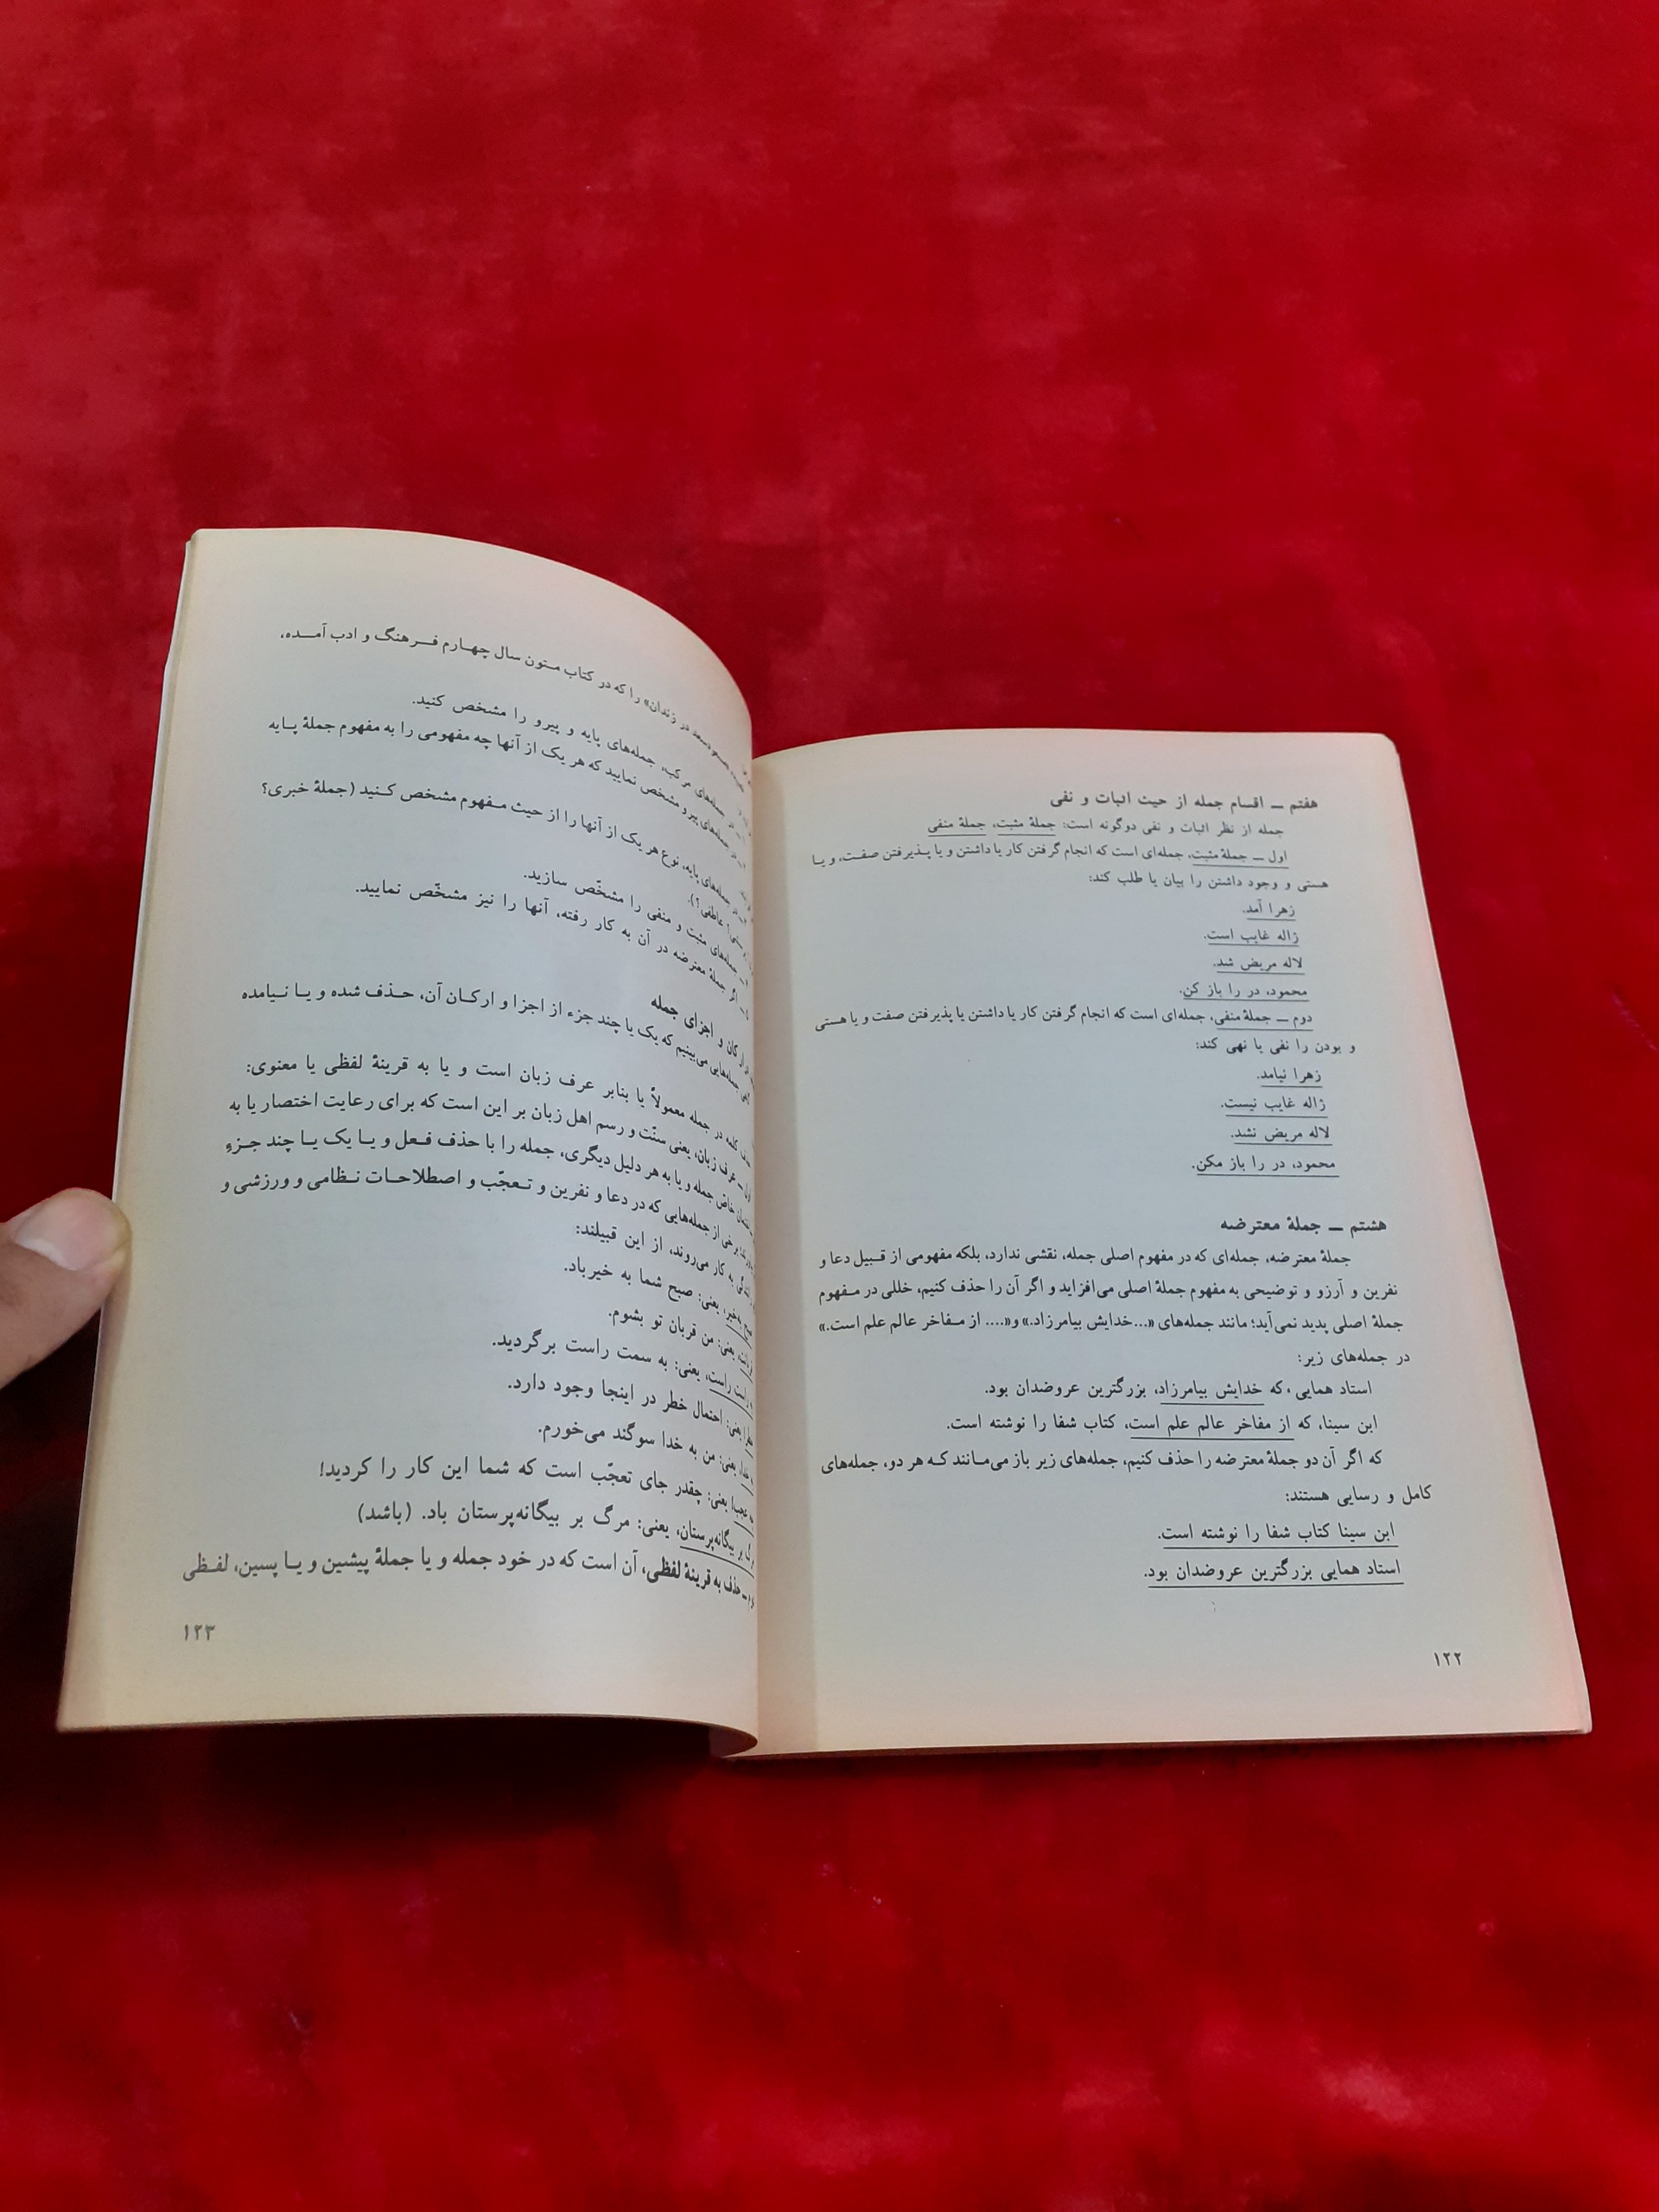 هفتم ــ اقسام جمله از حیث اثبات و نفی
جمله از نظر اثبات و نفی دوگونه است: جملهٔ مثبت، جملهٔ منفی
اول ــ جملهٔ مثبت، جمله‌ای است که انجام گرفتن کار یا داشتن و یا پذیرفتن صفت، و یا
هستی و وجود داشتن را بیان یا طلب کند:
زهرا آمد.
ژاله غایب است.
لاله مریض شد.
محمود، در را باز کن.
دوم ــ جملهٔ منفی، جمله‌ای است که انجام گرفتن کار یا داشتن یا پذیرفتن صفت و یا هستی
و بودن را نفی یا نهی کند:
زهرا نیامد.
ژاله غایب نیست.
لاله مریض نشد.
محمود، در را باز مکن.
هشتم ــ جملهٔ معترضه
جملهٔ معترضه، جمله‌ای که در مفهوم اصلی جمله، نقشی ندارد، بلکه مفهومی از قبیل دعا و
نفرین و آرزو و توضیحی به مفهوم جملهٔ اصلی می‌افزاید و اگر آن را حذف کنیم، خللی در مفهوم
جملهٔ اصلی پدید نمی‌آید؛ مانند جمله‌های «...خدایش بیامرزاد.» و«.... از مفاخر عالم علم است.»
در جمله‌های زیر:
استاد همایی، که خدایش بیامرزاد، بزرگترین عروضدان بود.
ابن سینا، که از مفاخر عالم علم است، کتاب شفا را نوشته است.
که اگر آن دو جملهٔ معترضه را حذف کنیم، جمله‌های زیر باز می‌مانند که هر دو، جمله‌های
کامل و رسایی هستند:
ابن سینا کتاب شفا را نوشته است.
استاد همایی بزرگترین عروضدان بود.
۱۲۲
در زندان» را که در کتاب متون سال چهارم فرهنگ و ادب آمده،
جمله‌های مرکب، جمله‌های پایه و پیرو را مشخص کنید.
جمله‌های پیرو مشخص نمایید که هر یک از آنها چه مفهومی را به مفهوم جملهٔ پایه
در جمله‌های پایه، نوع هر یک از آنها را از حیث مفهوم مشخص کنید (جملهٔ خبری؟
عاطفی؟).
جمله‌های مثبت و منفی را مشخّص سازید.
اگر جملهٔ معترضه در آن به کار رفته، آنها را نیز مشخّص نمایید.
ارکان و اجزای جمله
جمله‌هایی می‌بینیم که یک یا چند جزء از اجزا و ارکان آن، حذف شده و یا نیامده
کلمه در جمله معمولاً یا بنابر عرف زبان است و یا به قرینهٔ لفظی یا معنوی:
عرف زبان، یعنی سنّت و رسم اهل زبان بر این است که برای رعایت اختصار یا به
خاصّ جمله و یا به هر دلیل دیگری، جمله را با حذف فعل و یا یک یا چند جزءِ
برخی از جمله‌هایی که در دعا و نفرین و تعجّب و اصطلاحات نظامی و ورزشی و
به کار می‌روند، از این قبیلند:
یعنی: صبح شما به خیر باد.
یعنی: من قربان تو بشوم.
راست، یعنی: به سمت راست برگردید.
یعنی: احتمال خطر در اینجا وجود دارد.
یعنی: من به خدا سوگند می‌خورم.
یعنی: چقدر جای تعجّب است که شما این کار را کردید!
بر بیگانه‌پرستان، یعنی: مرگ بر بیگانه‌پرستان باد. (باشد)
حذف به قرینهٔ لفظی، آن است که در خود جمله و یا جملهٔ پیشین و یا پسین، لفظی
۱۲۳